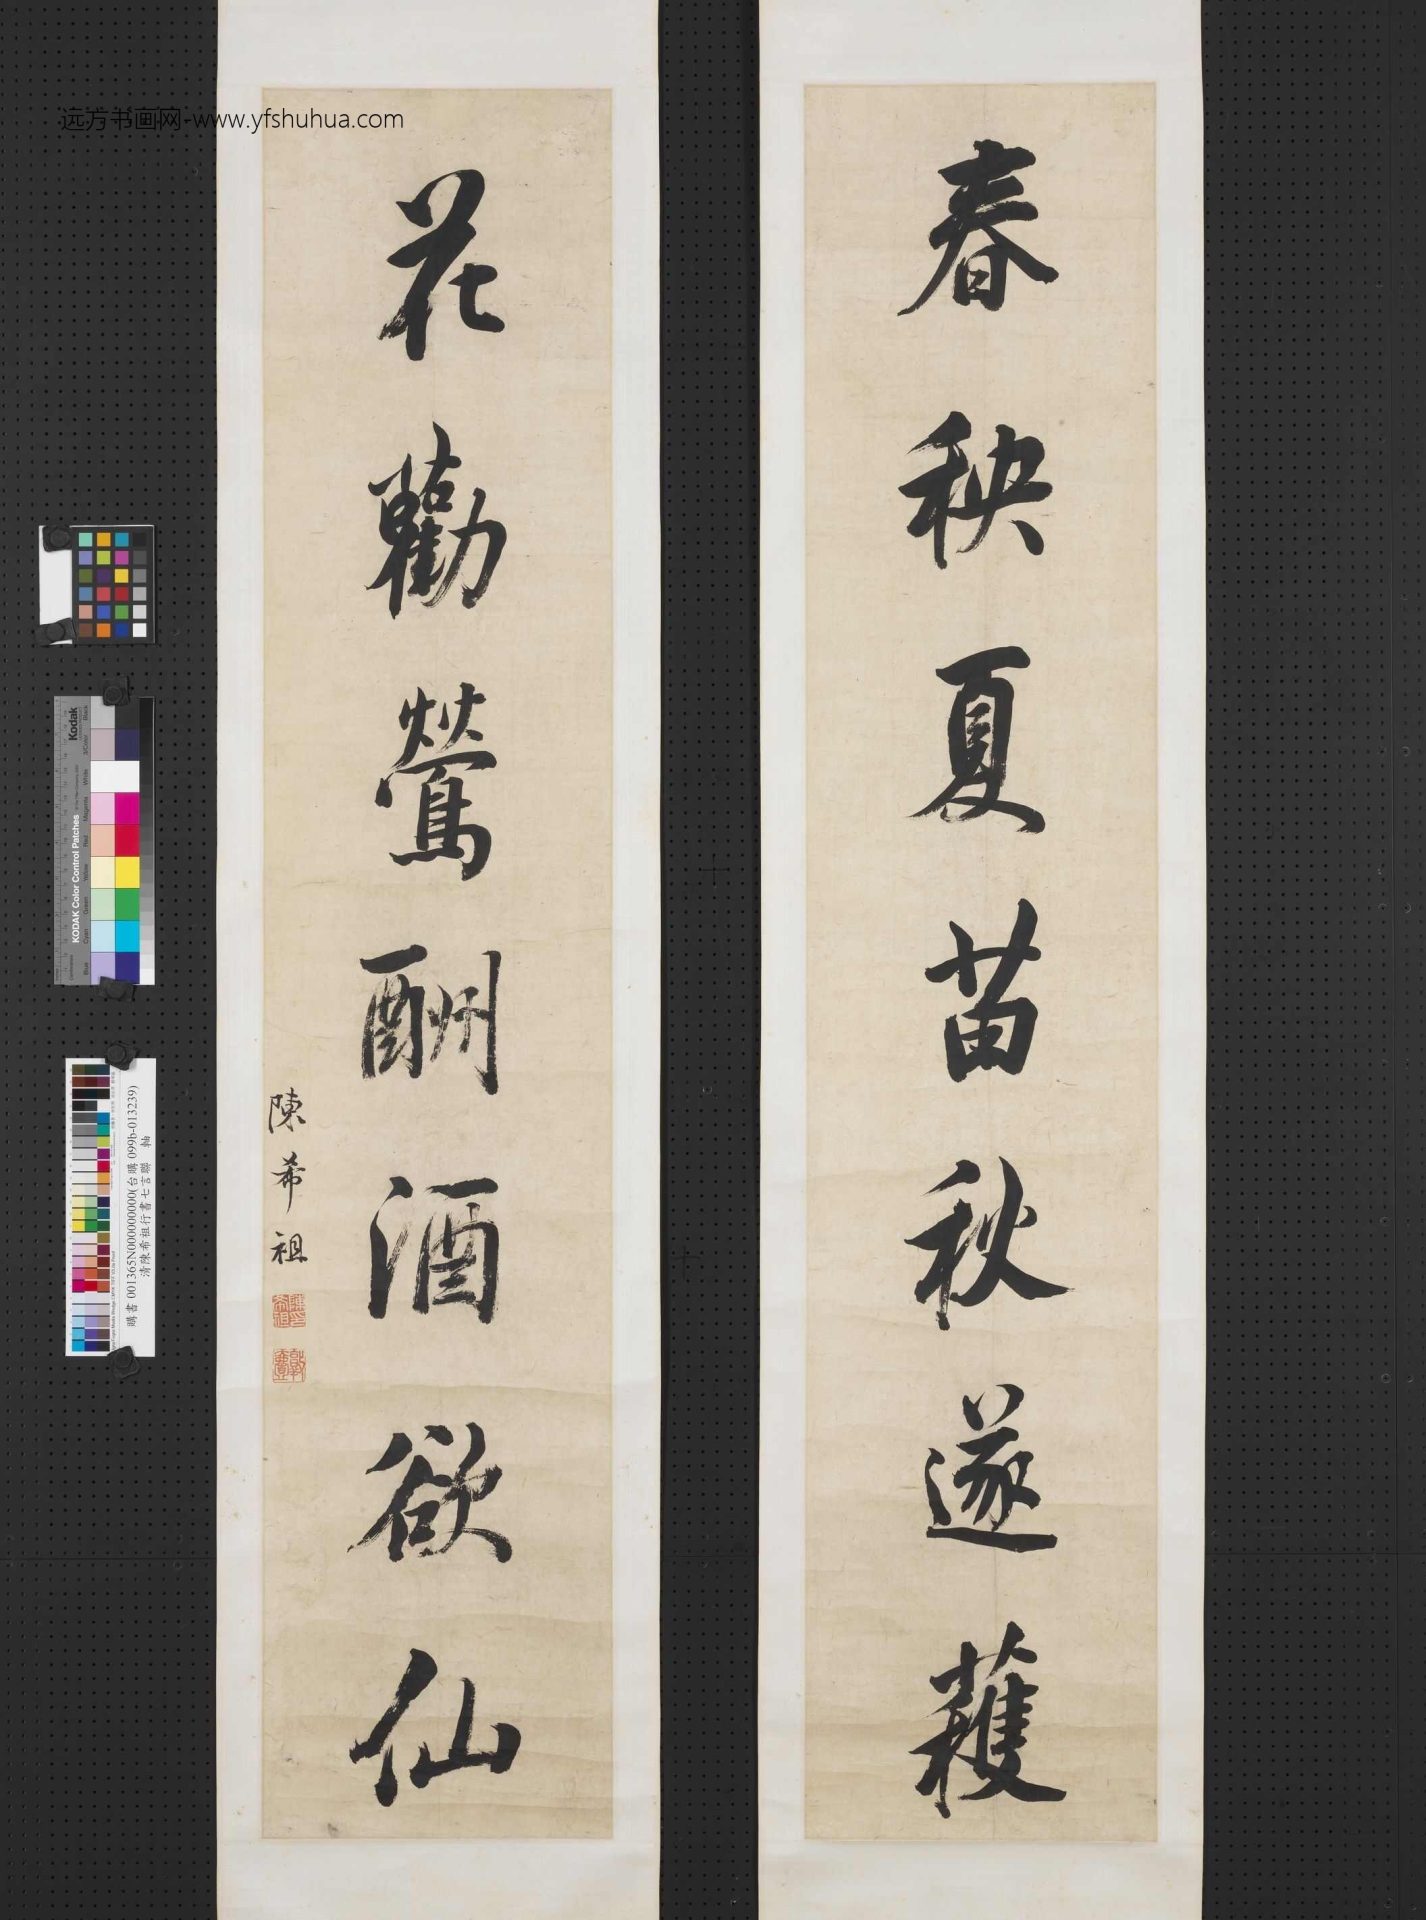 远方书画网-www.yfshuhua.com
春秧夏苗秋遂穫
花勸鶯酬酒欲仙
陳希祖
Kodak
KODAK Color Control Patches
Blue
Cyan
Green
Yellow
Red
Magenta
White
3/Color
Black
購書 001365N000000000(台購 099b-013239)
清陳希祖行書七言聯 軸